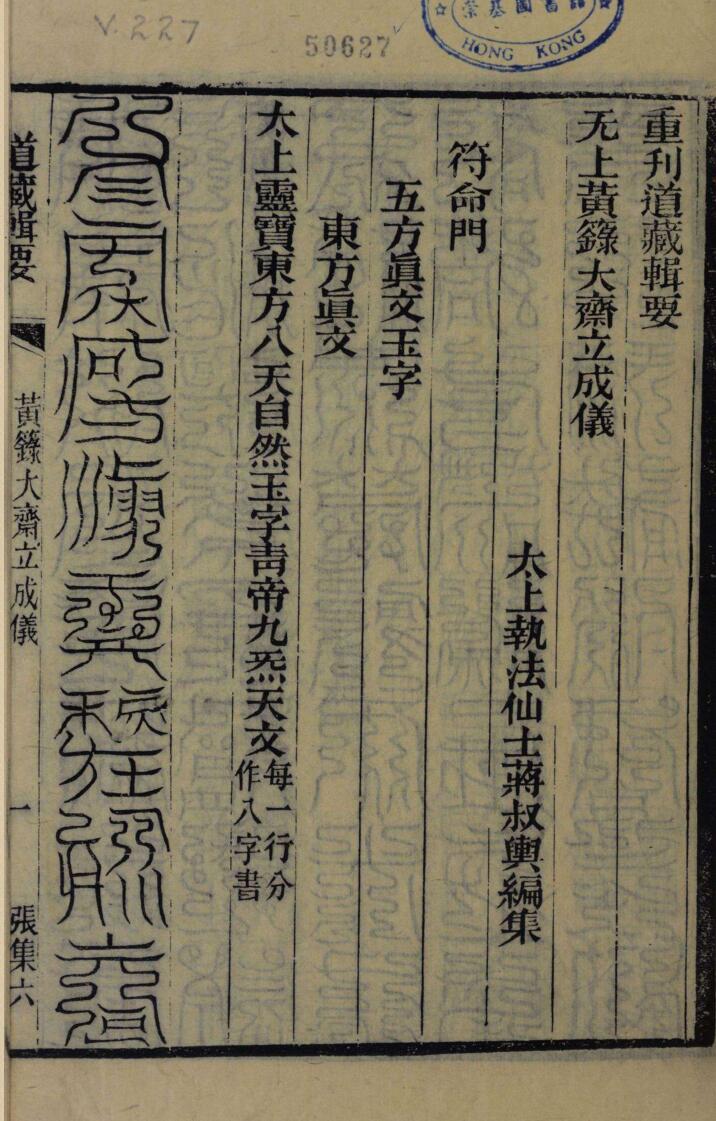 V.227
50627
HONG KONG
重刊道藏輯要
无上黃籙大齋立成儀
太上執法仙士蔣叔輿編集
符命門
五方眞文玉字
東方眞文
太上靈寶東方八天自然玉字靑帝九炁天文
每一行分
作八字書
道藏輯要
黃籙大齋立成儀
一
張集六